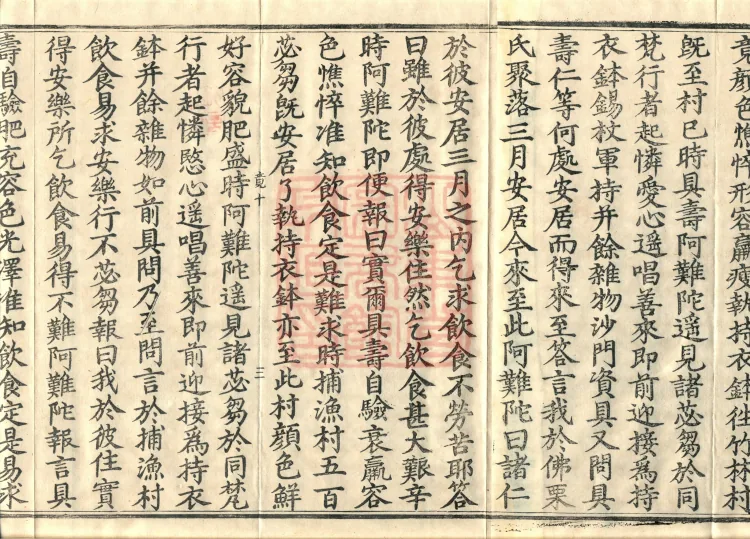 竟顔色憔悴形容羸瘦執持衣鉢往竹林村
既至村已時具壽阿難陀遥見諸苾芻於同
梵行者起憐愛心遥唱善來即前迎接為持
衣鉢錫杖軍持并餘雜物沙門資具又問具
壽仁等何處安居而得來至答言我於佛栗
氏聚落三月安居今來至此阿難陀曰諸仁
於彼安居三月之内乞求飲食不勞苦耶答
曰雖於彼處得安樂住然乞飲食甚大艱辛
時阿難陀即便報曰實爾具壽自驗衰羸容
色憔悴准知飲食定是難求時捕漁村五百
竟十 三
苾芻既安居了執持衣鉢亦至此村顔色鮮
好容貌肥盛時阿難陀遥見諸苾芻於同梵
行者起憐愍心遥唱善來即前迎接為持衣
鉢并餘雜物如前具問乃至問言於捕漁村
飲食易求安樂行不苾芻報曰我於彼住實
得安樂所乞飲食易得不難阿難陀報言具
壽自驗肥充容色光澤准知飲食定是易求